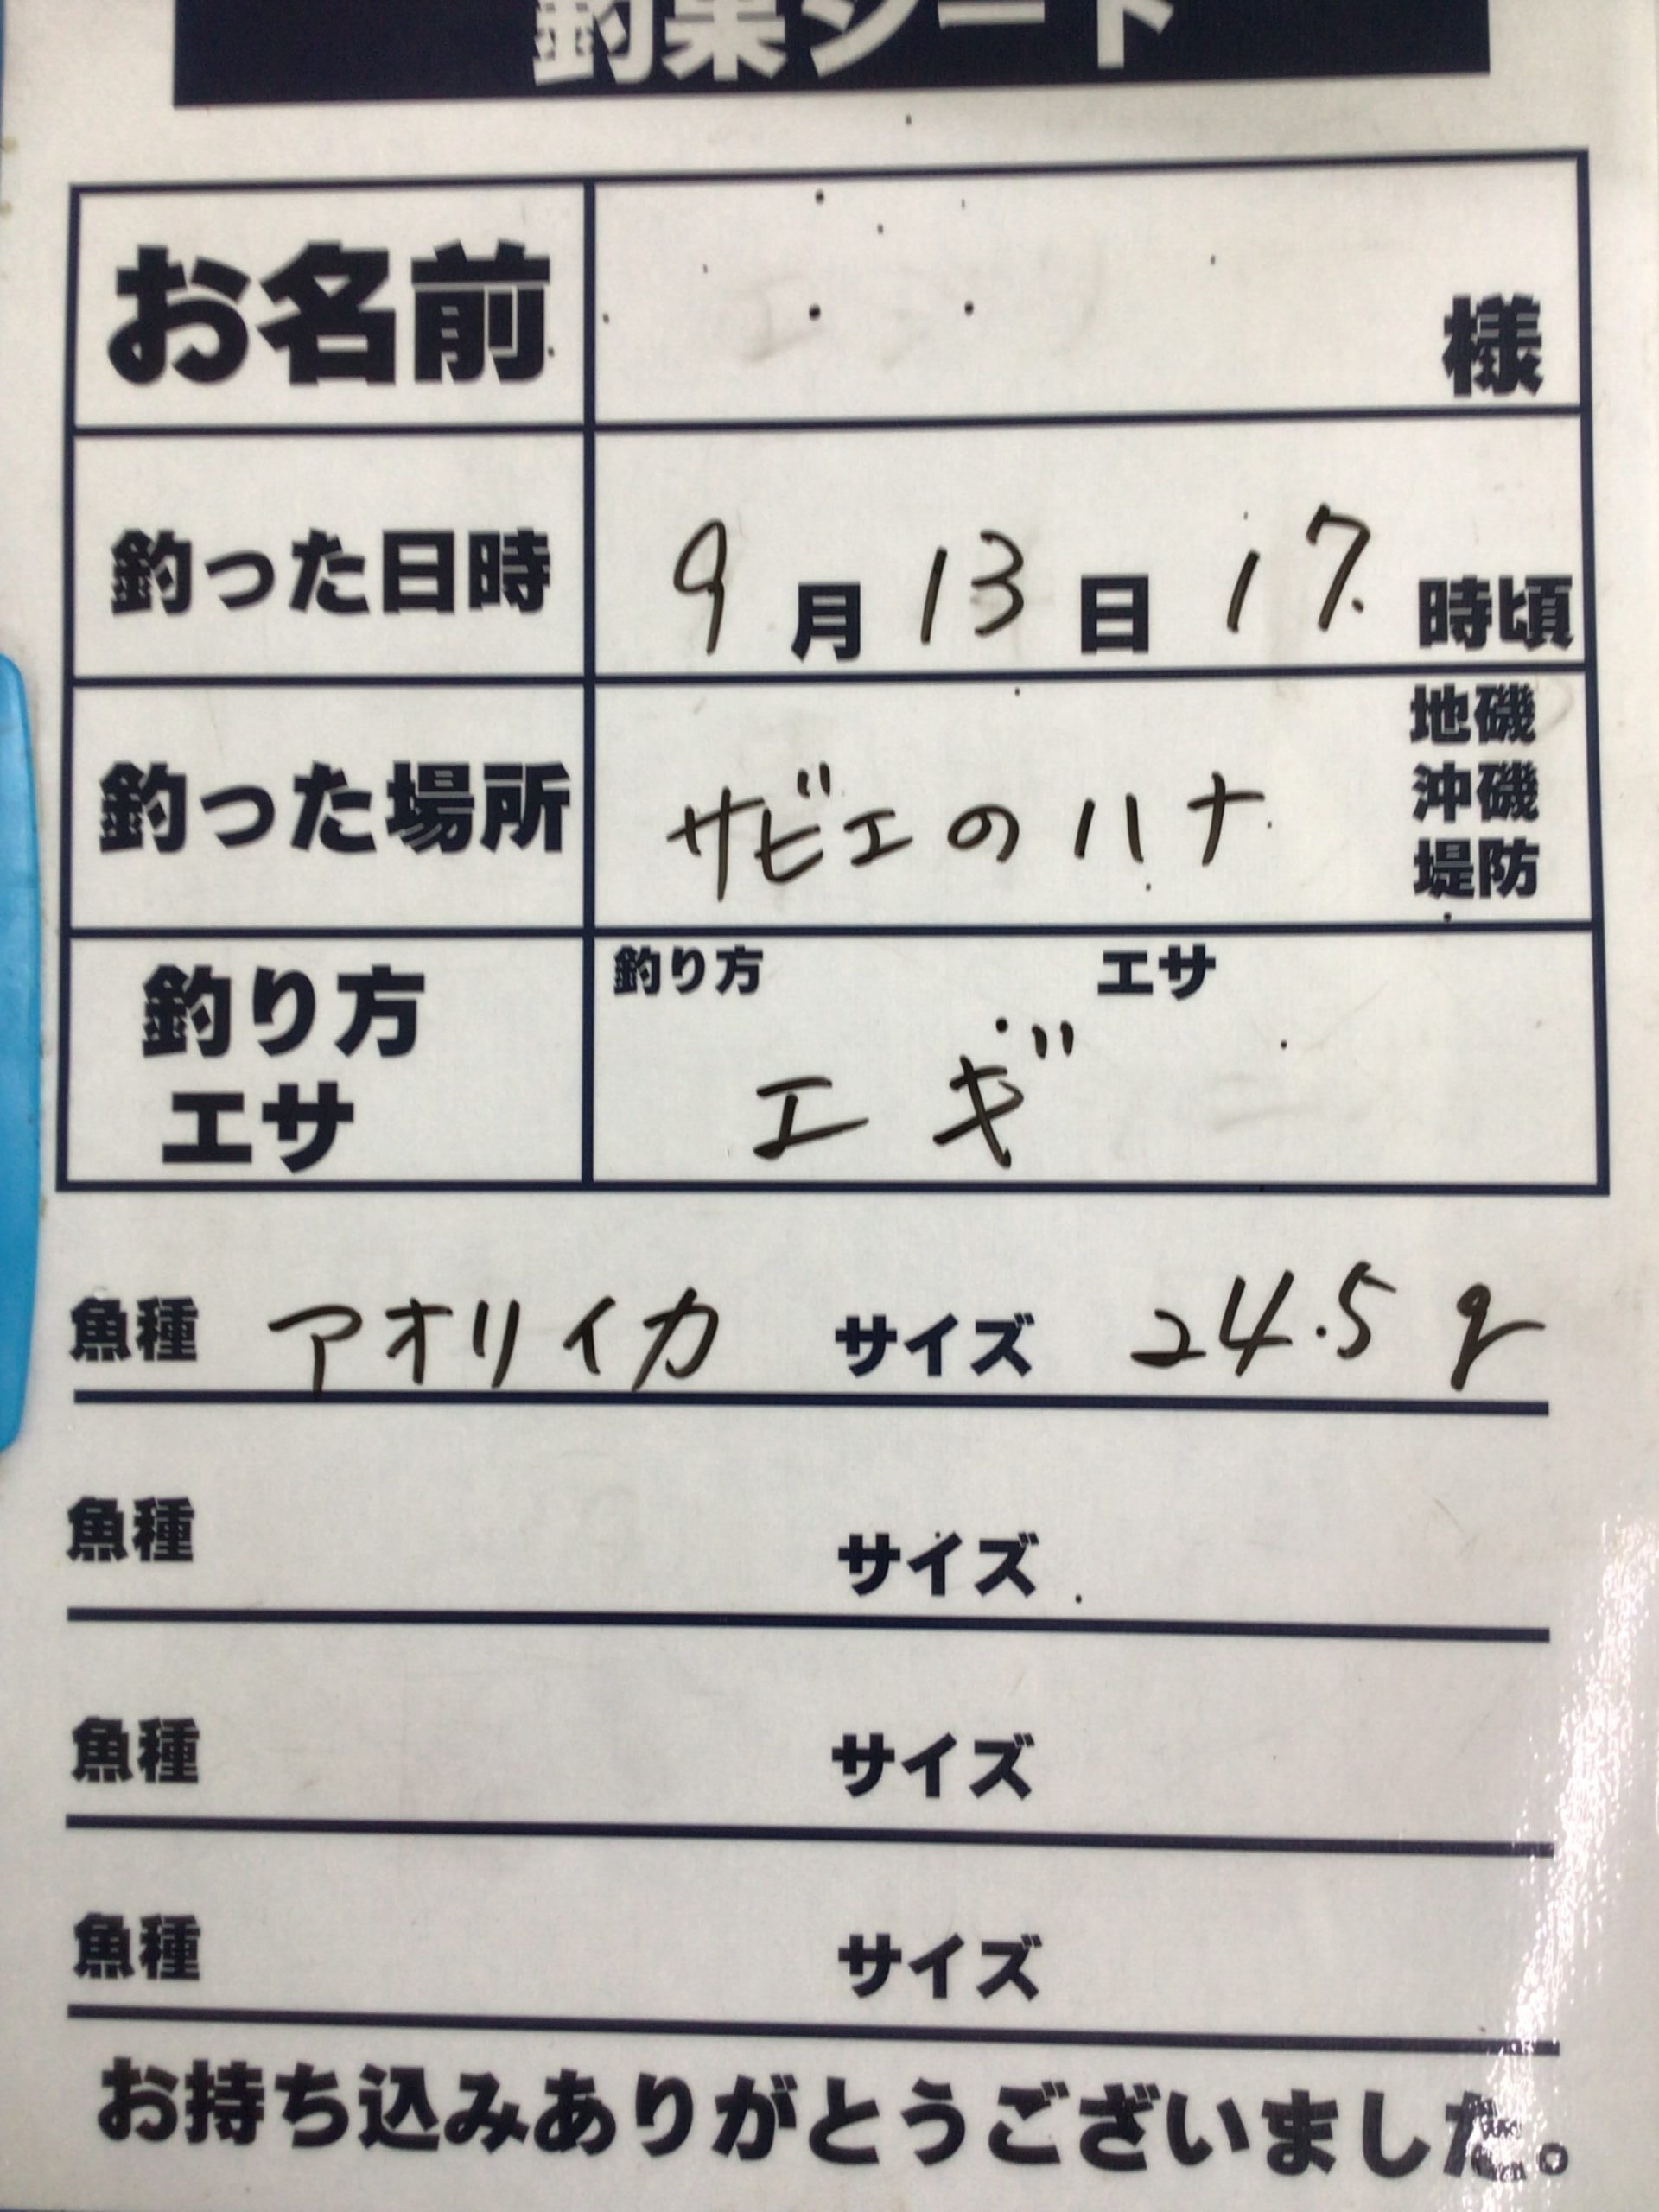 釣果シート
お名前 様
釣った日時 9月13日17時頃
釣った場所 サビエのハナ 地磯
沖磯
堤防
釣り方 エサ
釣り方 エサ
エギ
魚種 アオリイカ サイズ 24.5g
魚種 サイズ
魚種 サイズ
魚種 サイズ
お持ち込みありがとうございました。